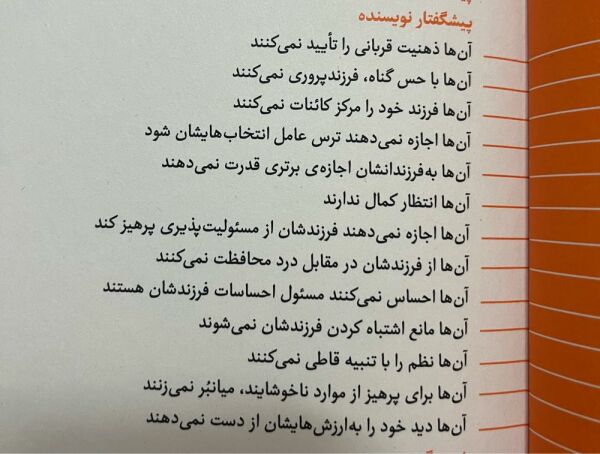 پیشگفتار نویسنده
آن‌ها ذهنیت قربانی را تأیید نمی‌کنند
آن‌ها با حس گناه، فرزندپروری نمی‌کنند
آن‌ها فرزند خود را مرکز کائنات نمی‌کنند
آن‌ها اجازه نمی‌دهند ترس عامل انتخاب‌هایشان شود
آن‌ها به‌فرزندانشان اجازه‌ی برتری قدرت نمی‌دهند
آن‌ها انتظار کمال ندارند
آن‌ها اجازه نمی‌دهند فرزندشان از مسئولیت‌پذیری پرهیز کند
آن‌ها از فرزندشان در مقابل درد محافظت نمی‌کنند
آن‌ها احساس نمی‌کنند مسئول احساسات فرزندشان هستند
آن‌ها مانع اشتباه کردن فرزندشان نمی‌شوند
آن‌ها نظم را با تنبیه قاطی نمی‌کنند
آن‌ها برای پرهیز از موارد ناخوشایند، میانبُر نمی‌زنند
آن‌ها دید خود را به‌ارزش‌هایشان از دست نمی‌دهند